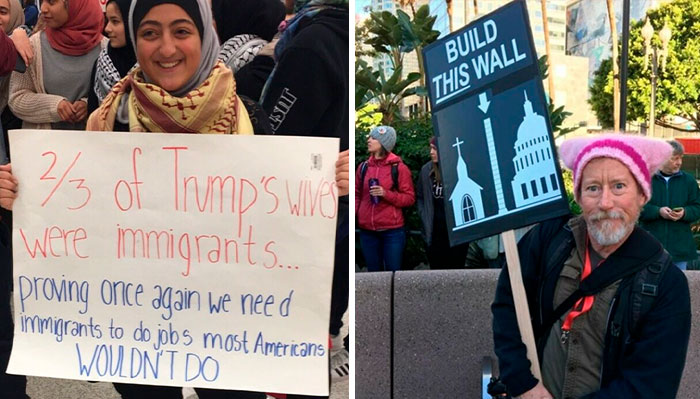 2/3 of Trump's wives
were immigrants...
proving once again we need
immigrants to do jobs most Americans
WOULDN'T DO
BUILD
THIS WALL